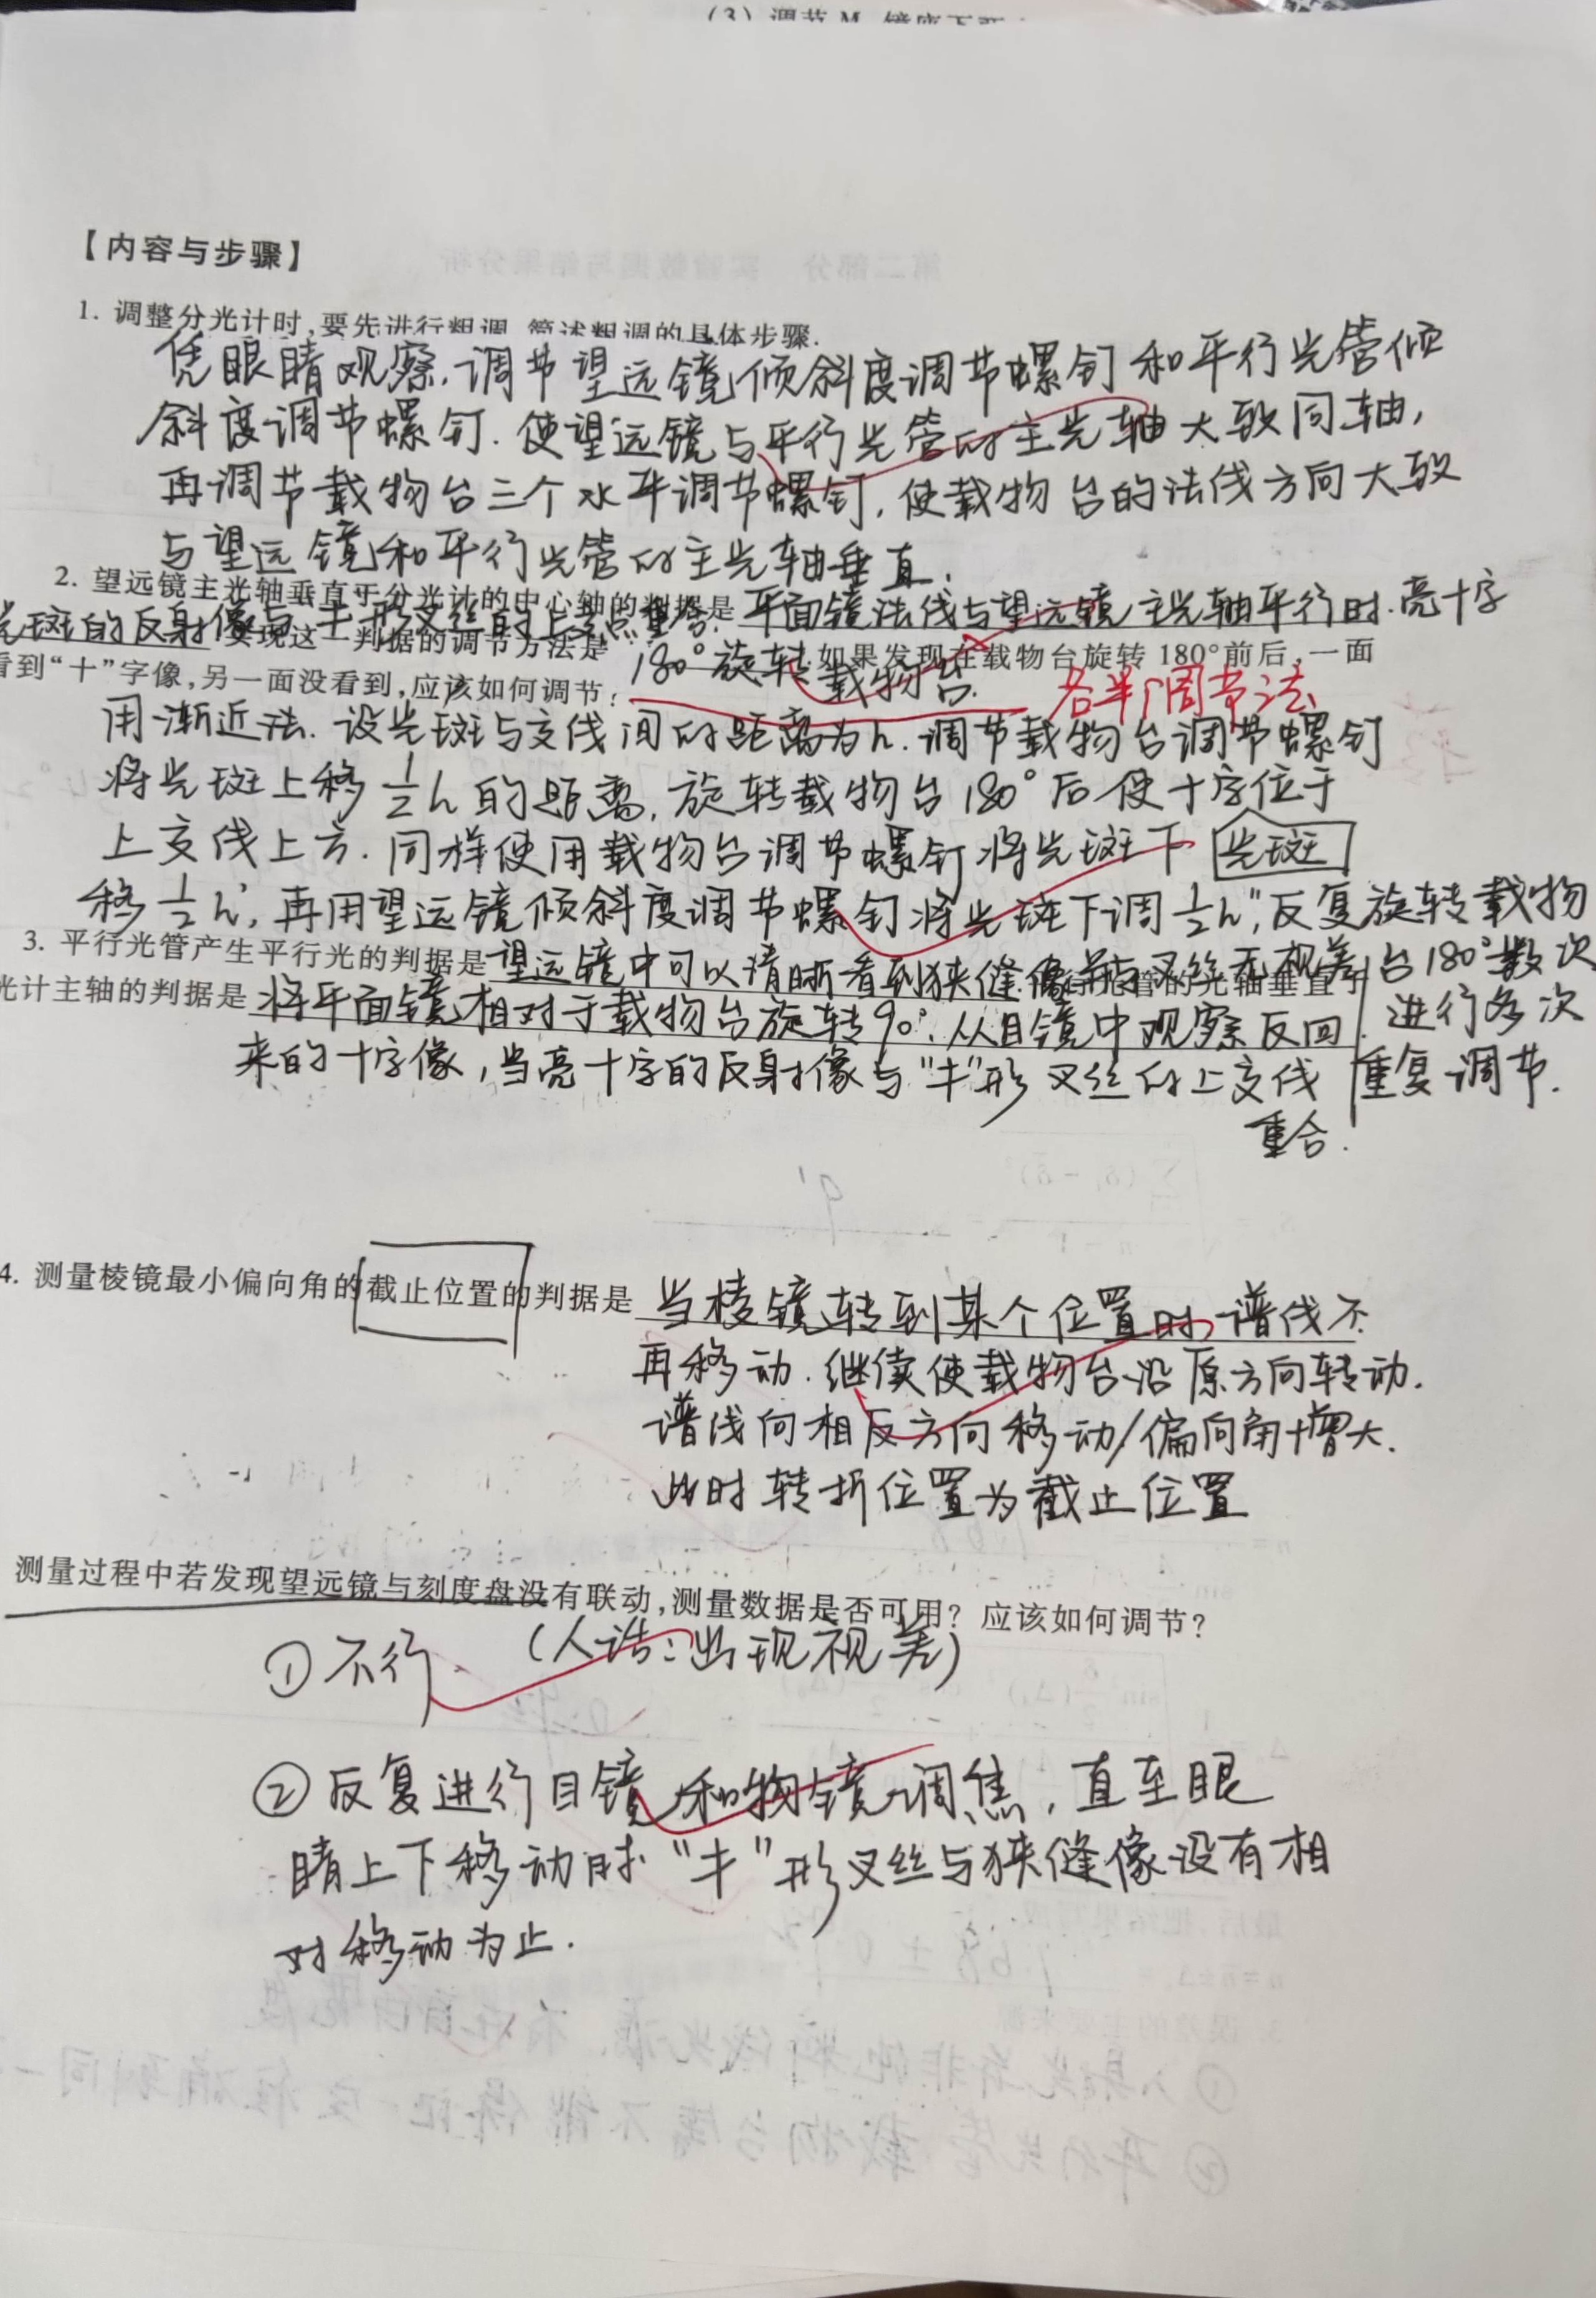 (3) 调节 M 镜座下
【内容与步骤】
1. 调整分光计时,要先进行粗调,简述粗调的具体步骤.
凭眼睛观察,调节望远镜倾斜度调节螺钉和平行光管倾
斜度调节螺钉.使望远镜与平行光管的主光轴大致同轴,
再调节载物台三个水平调节螺钉,使载物台的法线方向大致
与望远镜和平行光管的主光轴垂直.
2. 望远镜主光轴垂直于分光计的中心轴的判据是 平面镜法线与望远镜主光轴平行时.亮十字
光斑的反射像与"丰"形叉丝的上交点重合.
实现这一判据的调节方法是 180°旋转载物台. 如果发现在载物台旋转 180°前后,一面
看到“十”字像,另一面没看到,应该如何调节?
各半调节法
用渐近法.设光斑与交线间的距离为h.调节载物台调节螺钉
将光斑上移 1/2 h 的距离,旋转载物台180°后使十字位于
上交线上方.同样使用载物台调节螺钉将光斑下 光斑
移 1/2 h',再用望远镜倾斜度调节螺钉将光斑下调 1/2 h",反复旋转载物
台180°数次
进行多次
重复调节.
3. 平行光管产生平行光的判据是 望远镜中可以清晰看到狭缝像并与叉丝无视差
光管的光轴垂直于
光计主轴的判据是 将平面镜相对于载物台旋转90°.从目镜中观察反回
来的十字像,当亮十字的反射像与"丰"形叉丝的上交线
重合.
4. 测量棱镜最小偏向角的截止位置的判据是 当棱镜转到某个位置时,谱线不
再移动.继续使载物台沿原方向转动.
谱线向相反方向移动/偏向角增大.
此时转折位置为截止位置
测量过程中若发现望远镜与刻度盘没有联动,测量数据是否可用? 应该如何调节?
①不行. (人话:出现视差)
②反复进行目镜和物镜调焦,直至眼
睛上下移动时"丰"形叉丝与狭缝像没有相
对移动为止.